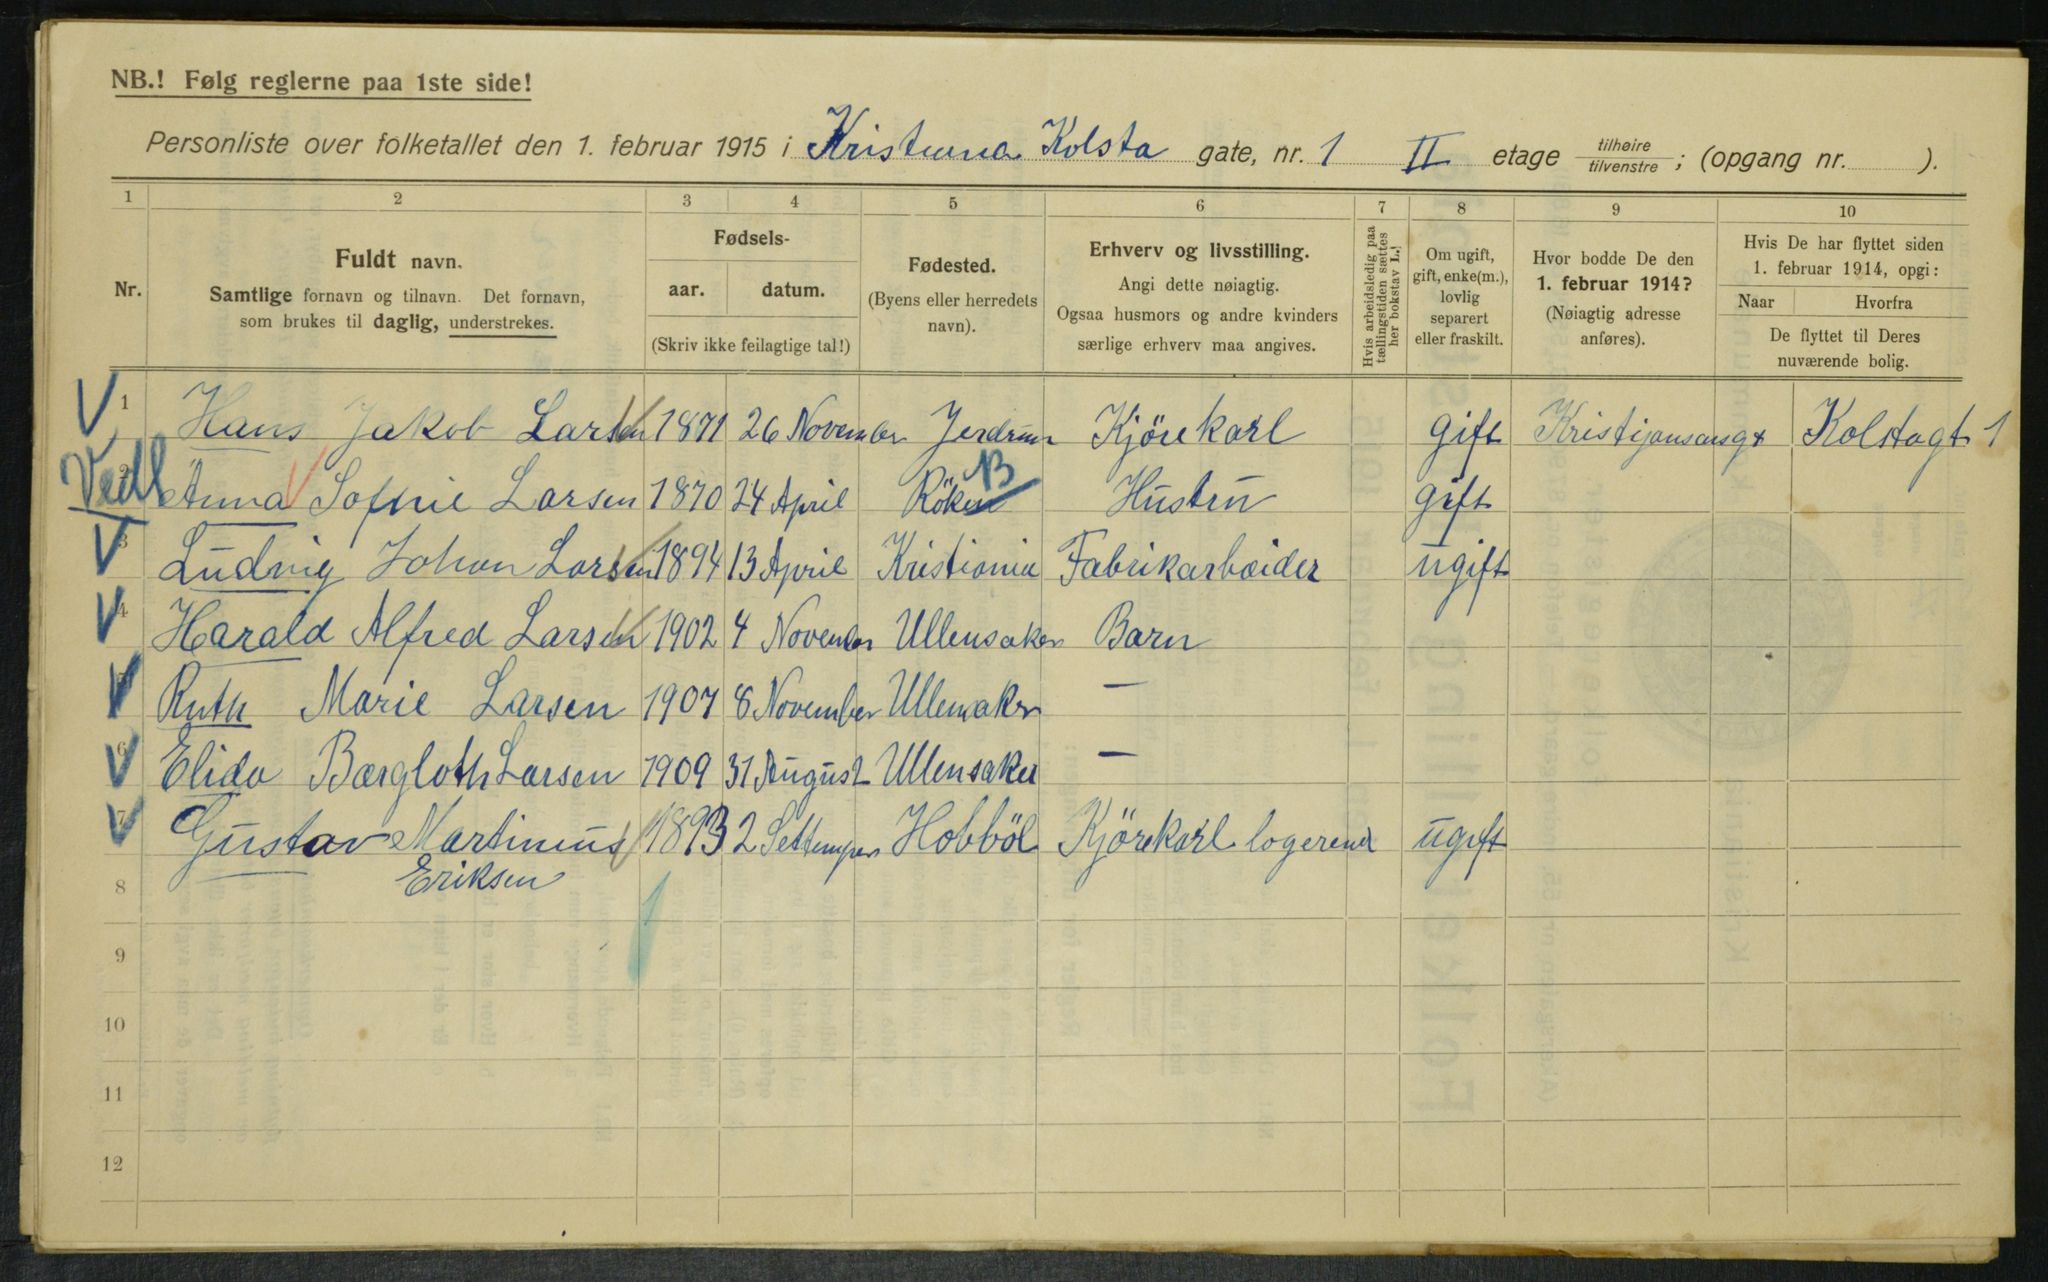 NB.! Følg reglerne paa 1ste side!
Personliste over folketallet den 1. februar 1915 i Kristiania Kolsta gate, nr. 1 II etage tilhøire tilvenstre ; (opgang nr. ).
1 2 3 4 5 6 7 8 9 10
Nr.
Fuldt navn.
Samtlige fornavn og tilnavn. Det fornavn,
som brukes til daglig, understrekes.
Fødsels-
aar. datum.
(Skriv ikke feilagtige tal!)
Fødested.
(Byens eller herredets
navn).
Erhverv og livsstilling.
Angi dette nøiagtig.
Ogsaa husmors og andre kvinders
særlige erhverv maa angives.
Hvis arbeidsledig paa
tællingstiden sættes
her bokstav L.!
Om ugift,
gift, enke(m.),
lovlig
separert
eller fraskilt.
Hvor bodde De den
1. februar 1914?
(Nøiagtig adresse
anføres).
Hvis De har flyttet siden
1. februar 1914, opgi:
Naar Hvorfra
De flyttet til Deres
nuværende bolig.
1 Hans Jakob Larsen 1871 26 November Jerdrum Kjörekarl gift Kolstagt 1
Vedl
2 Anna Sofhie Larsen 1870 24 April Röken B Hustru gift
3 Ludvig Johan Larsen 1894 13 April Kristiania Fabrikarbeider ugift
4 Harald Alfred Larsen 1902 4 November Ullensaker Barn
5 Ruth Marie Larsen 1907 8 November Ullensaker —
6 Elida Bærgloth Larsen 1909 31 August Ullensaker —
7 Gustav Martinius 1893 2 Settemper Hobböl Kjörekarl logerend ugift
Eriksen
8
9
10
11
12